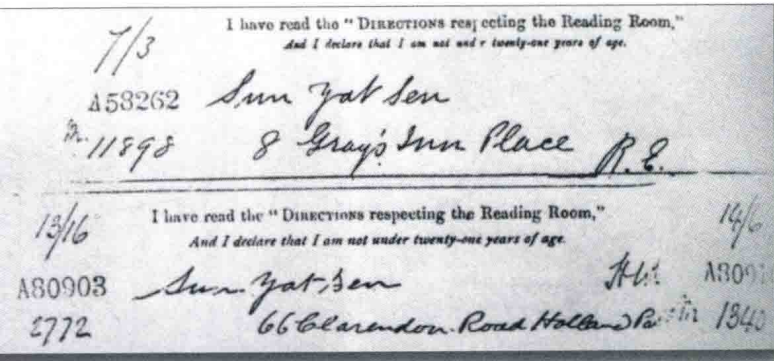 I have read the "DIRECTIONS respecting the Reading Room,"
And I declare that I am not under twenty-one years of age.
7/3
A58262 Sun Yat Sen
11898 8 Gray's Inn Place R.E.
I have read the "DIRECTIONS respecting the Reading Room,"
And I declare that I am not under twenty-one years of age.
13/16 14/6
A80903 Sun Yat Sen A809
2772 66 Clarendon Road Holland 1340